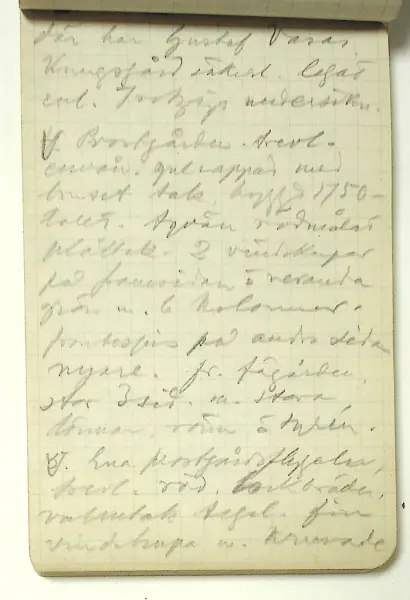 där har Gustaf Vasas
Kungsgård säkert legat
enl. undersökn.
V. Prostgården. Revl.
envån. gulrappad med
brutet tak, byggd 1750-
talet. rödmålat
plåttak. 2 vindskupor
på framsidan o veranda
grön m. 6 kolonner.
frontespis på andra sidan
nyare. Fr. fägården,
stor 3sid. m. stora
tönnar, rönn o syrén.
V. Ena prostgårdsflygeln,
Revl. röd, lockbräder,
valmtak tegel. fin
vindskupa m. krusade